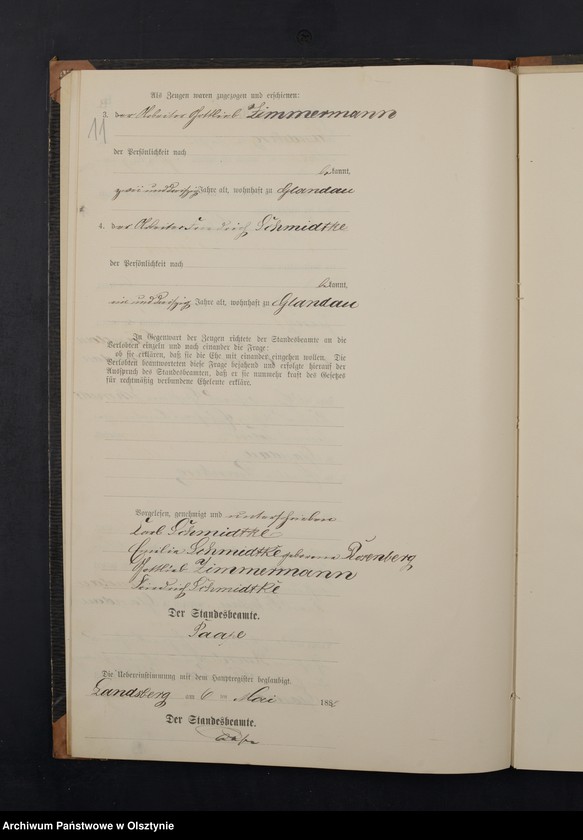 Als Zeugen waren zugezogen und erschienen:
11
3. der Arbeiter Gottlieb Zimmermann
der Persönlichkeit nach
kannt,
zwei und dreißig Jahre alt, wohnhaft zu Glandau
4. der Arbeiter Friedrich Schmidtke
der Persönlichkeit nach
kannt,
ein und dreißig Jahre alt, wohnhaft zu Glandau
In Gegenwart der Zeugen richtete der Standesbeamte an die
Verlobten einzeln und nach einander die Frage:
ob sie erklären, daß sie die Ehe mit einander eingehen wollen. Die
Verlobten beantworteten diese Frage bejahend und erfolgte hierauf der
Ausspruch des Standesbeamten, daß er sie nunmehr kraft des Gesetzes
für rechtmäßig verbundene Eheleute erkläre.
Vorgelesen, genehmigt und unterschrieben
Karl Schmidtke
Emilie Schmidtke geborene Rosenberg
Gottlieb Zimmermann
Friedrich Schmidtke
Der Standesbeamte.
Die Uebereinstimmung mit dem Hauptregister beglaubigt.
Landsberg am 6 ten Mai 188
Der Standesbeamte.
Archiwum Państwowe w Olsztynie